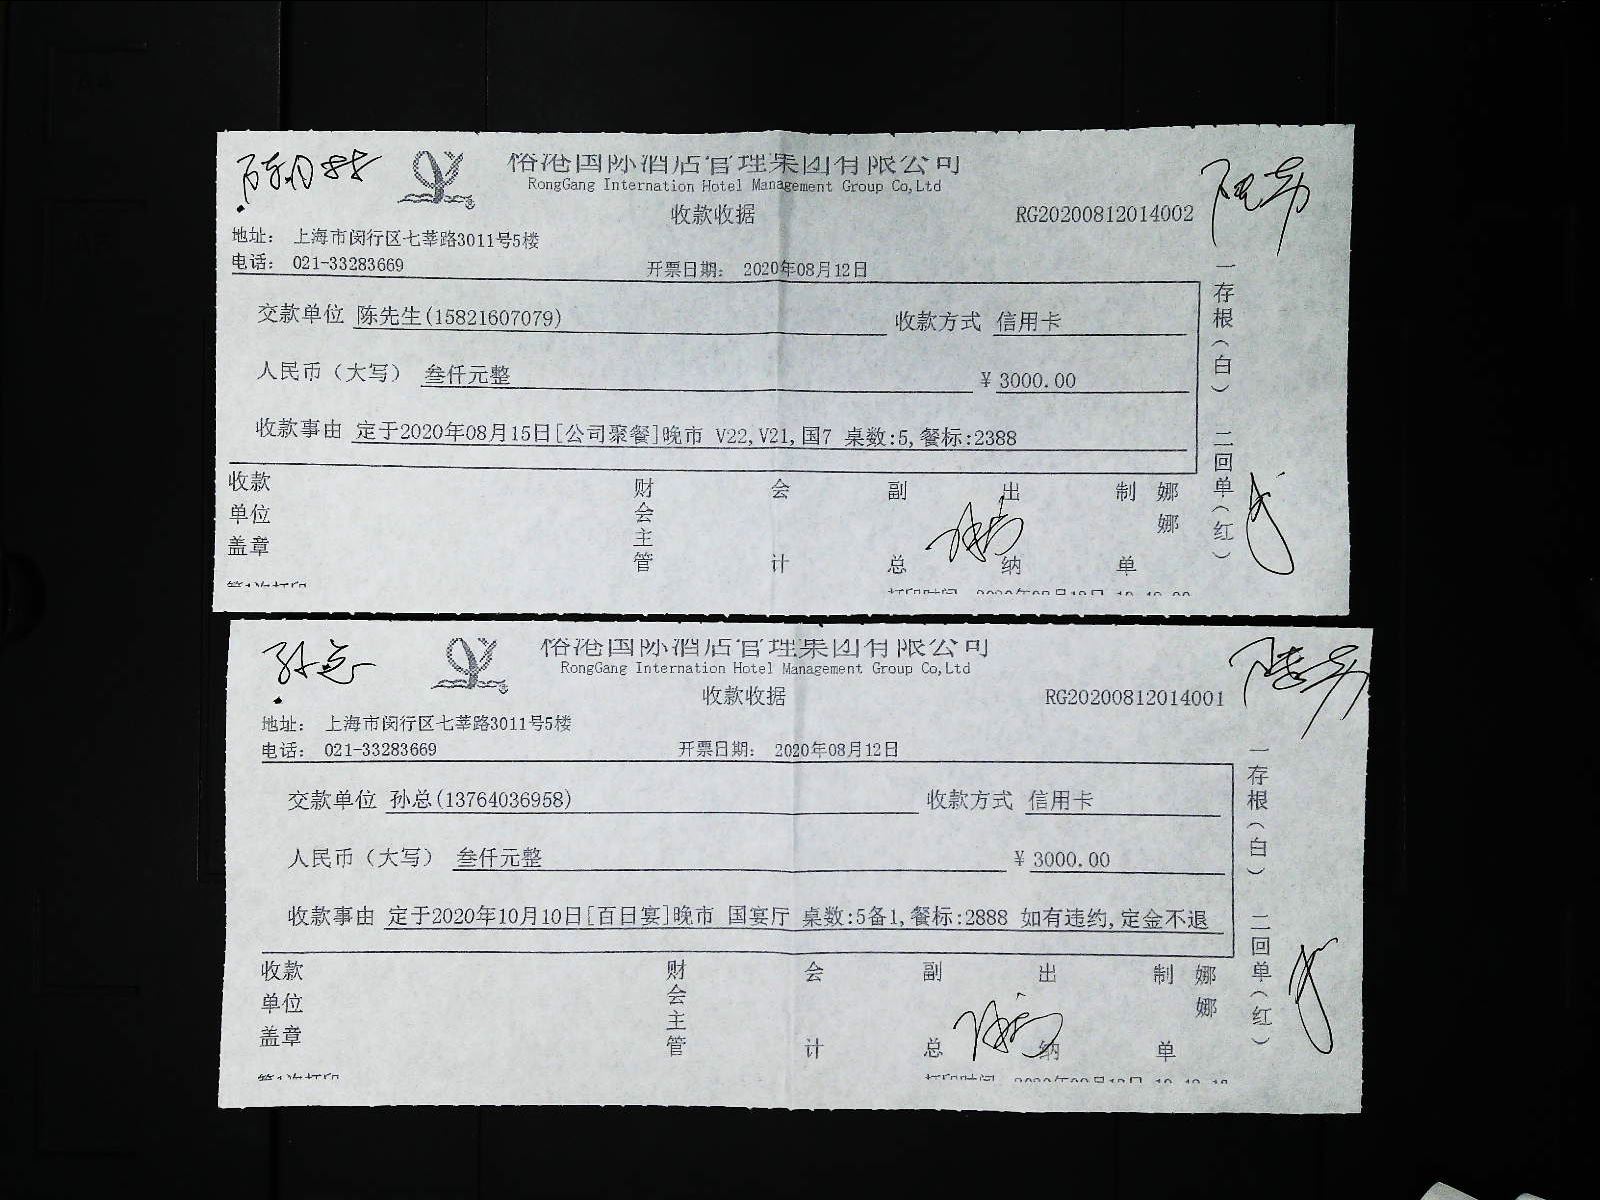 俗港国际酒店管理集团有限公司
RongGang Internation Hotel Management Group Co,Ltd
收款收据
RG20200812014002
地址： 上海市闵行区七莘路3011号5楼
电话： 021-33283669
开票日期： 2020年08月12日
交款单位 陈先生(15821607079) 收款方式 信用卡
人民币（大写） 叁仟元整 ¥ 3000.00
收款事由 定于2020年08月15日[公司聚餐]晚市 V22,V21,国7 桌数:5,餐标:2388
一存根（白） 二回单（红）
收款单位盖章 财会主管 会计 副总 出纳 制单 娜娜
第1次打印
孙总
俗港国际酒店管理集团有限公司
RongGang Internation Hotel Management Group Co,Ltd
收款收据
RG20200812014001
地址： 上海市闵行区七莘路3011号5楼
电话： 021-33283669
开票日期： 2020年08月12日
交款单位 孙总(13764036958) 收款方式 信用卡
人民币（大写） 叁仟元整 ¥ 3000.00
收款事由 定于2020年10月10日[百日宴]晚市 国宴厅 桌数:5备1,餐标:2888 如有违约,定金不退
一存根（白） 二回单（红）
收款单位盖章 财会主管 会计 副总 出纳 制单 娜娜
第1次打印